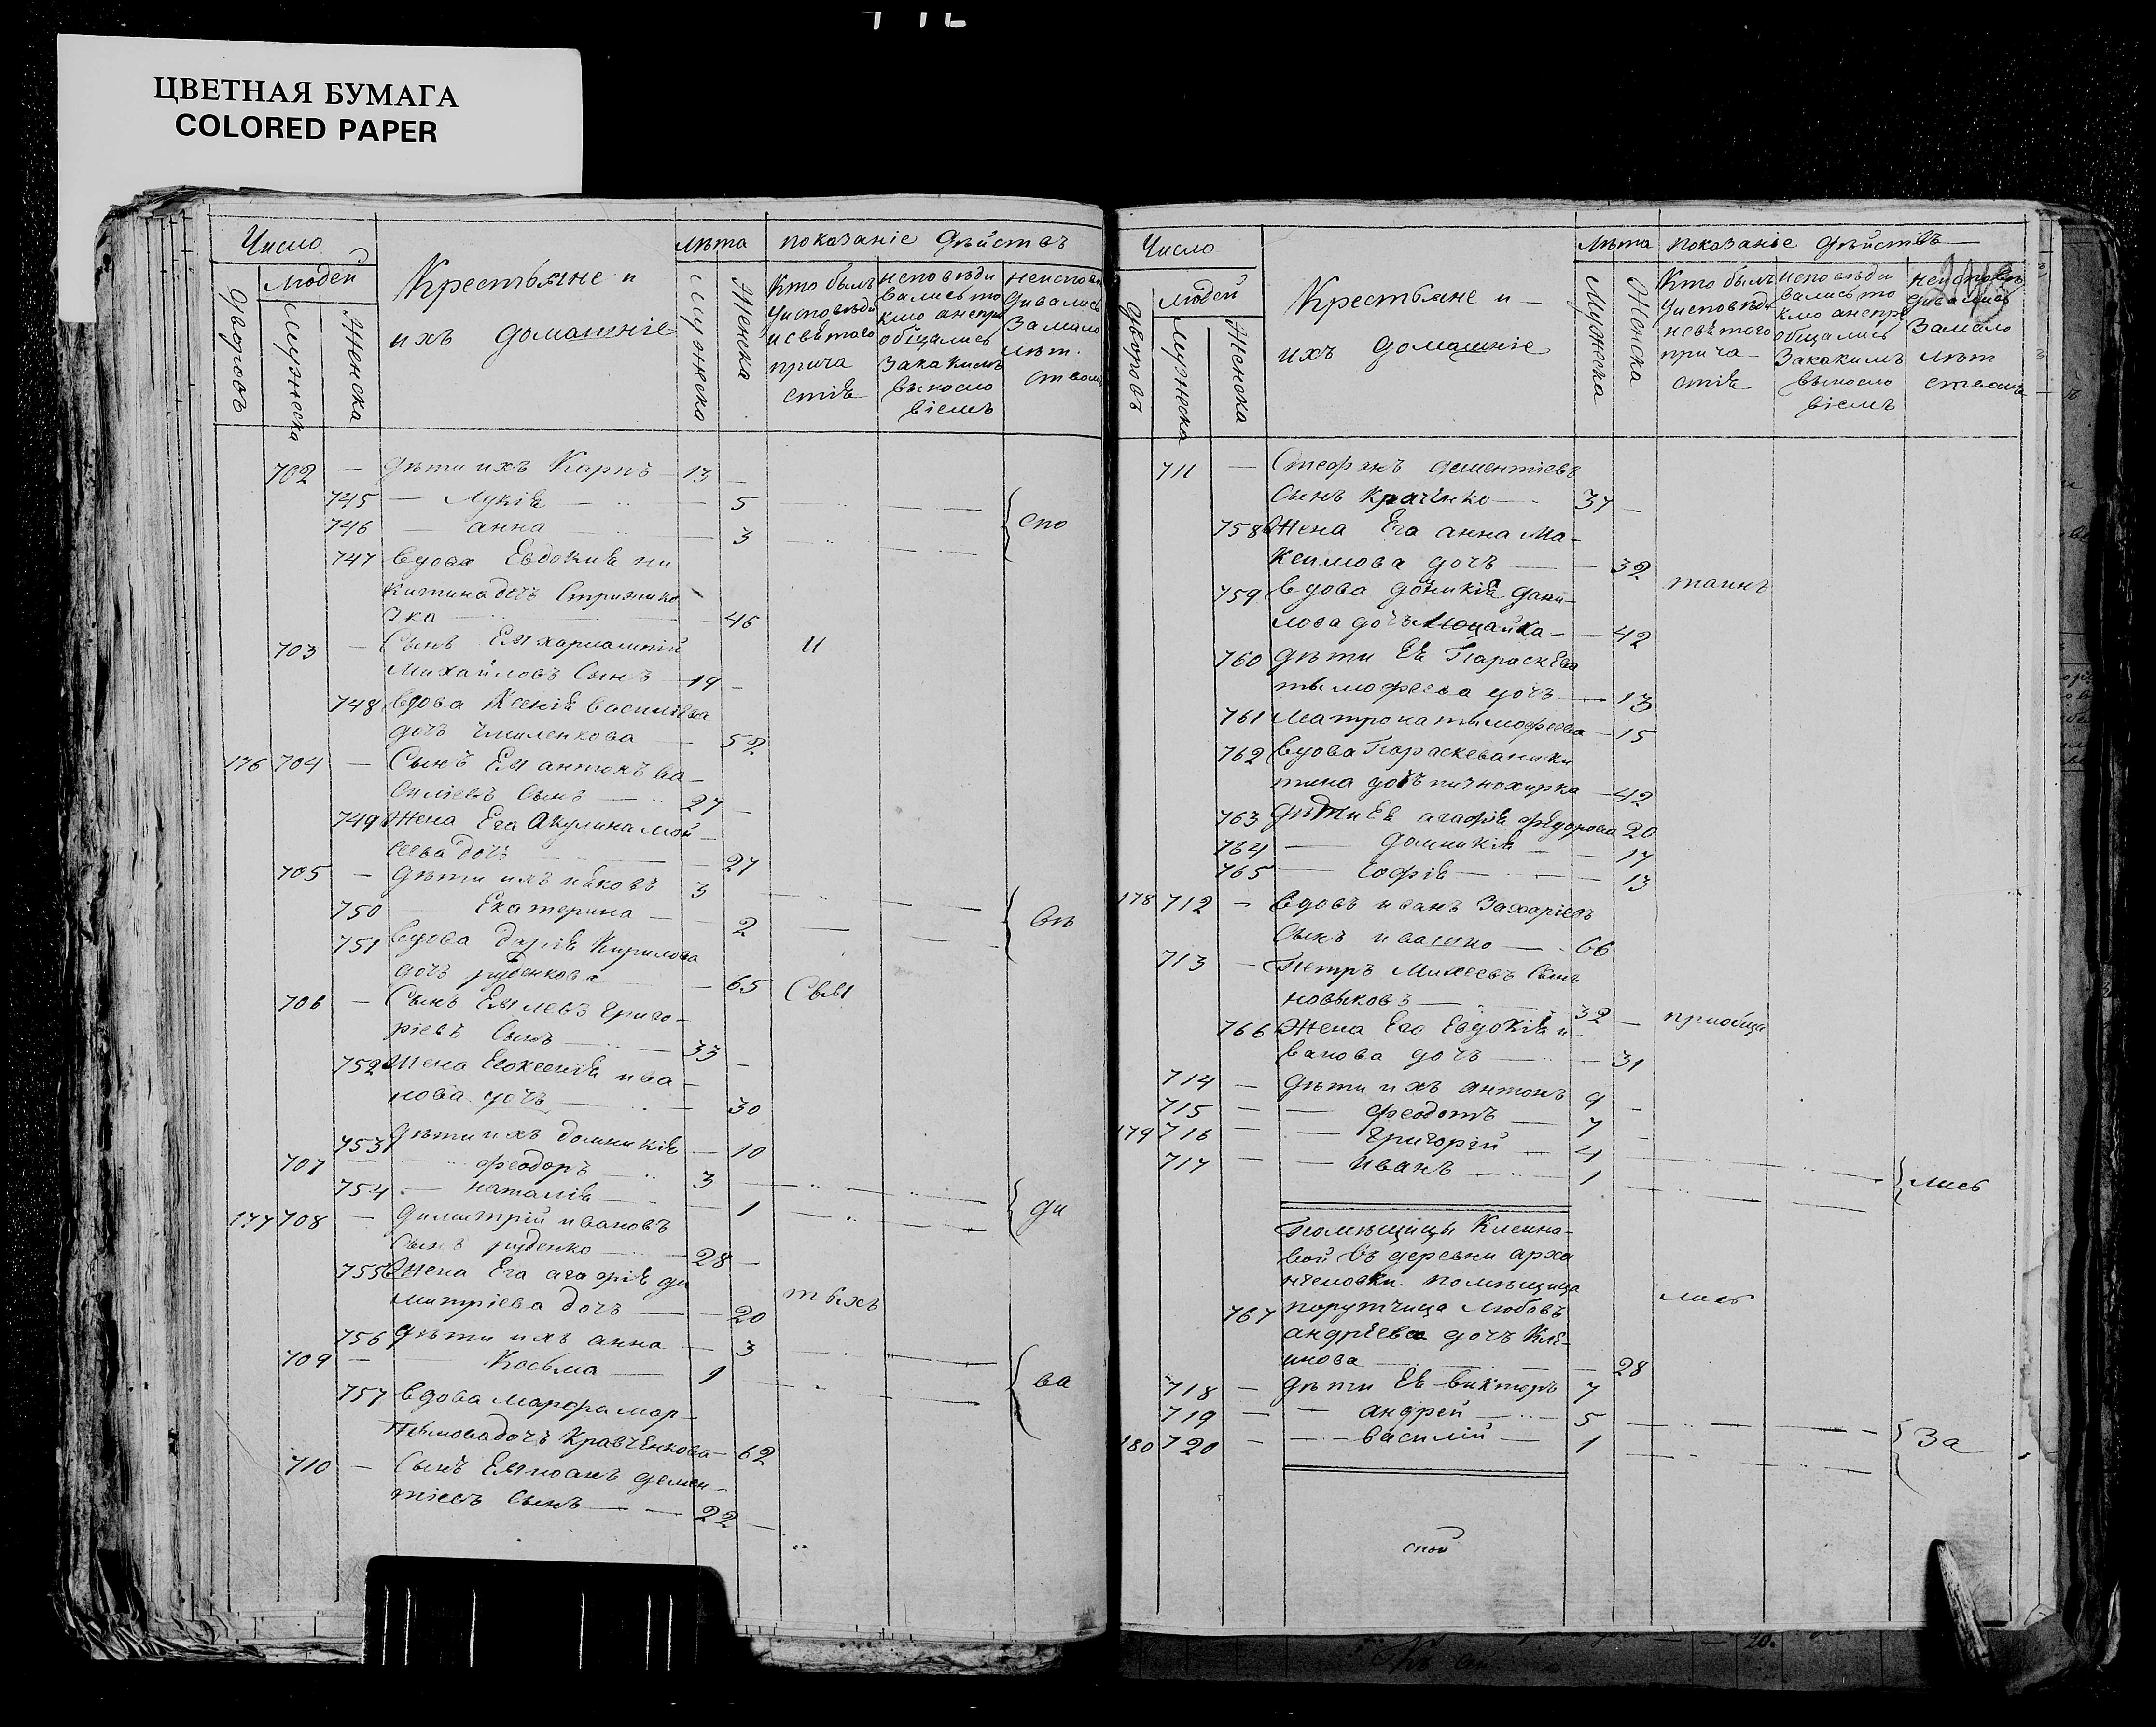 ЦВЕТНАЯ БУМАГА
COLORED PAPER
Число
людей
Дворовъ
Мужеска
Женска
Крестьяне и
ихъ домашніе
лѣта
Мужеска
Женска
показаніе дѣйствъ
Кто былъ
уисповѣди
исвѣтого
прича
стія
исповѣди
вались то
кмо анепри
общались
Закакимъ
выносло
віемъ
неиспові
дивались
Замало
лѣт.
ством
702 — дѣти ихъ Карпъ — 13 —
745 — Лукія — — 5
746 — анна — 3
спо
747 вдова Евдокия ни
китина дочъ Стрижако
ка — 46
703 — Сынъ Ея харлампій
Михайловъ Сынъ — 19 —
и
748 вдова Ксенія василіева
дочъ Чмиленкова — 52
176 704 — Сынъ Ея антонъ ва-
силіевъ Сынъ — 27 —
749 Жена Его Акулина мой-
сеева дочъ — 27
705 — дѣти ихъ иаковъ 3
750 — Екатерина — 2
вѣ
751 вдова дарія Кирилова
дочъ руденкова — 65
Свя
706 — Сынъ Ея левъ григо-
ріевъ Сынъ — 33 —
752 Жена Егоксенія ива-
нова дочъ — 30
753 дѣти ихъ домникія — 10
707 — феодоръ — 3
754 — наталія — 1
ди
177 708 — димитрій ивановъ
Сынъ руденко — 28 —
755 Жена Его агафія ди
митріева дочъ — 20
тыхъ
756 дѣти ихъ анна — 3
709 — Косьма — 1
ва
757 вдова марфа мар-
тыновадочъ Кравченкова — 62
710 — Сынъ Ея иоанъ демен-
тіевъ Сынъ — 22 —
Число
людей
Дворовъ
Мужеска
Женска
Крестьяне и —
ихъ домашніе
Лѣта
Мужеска
Женска
показаніе дѣйствъ —
Кто былъ
уисповѣди
исвѣтого
прича-
стія
исповѣди
вались то
кмо анепри
общались
Закакимъ
выносло
віемъ
дивались
Замало
лѣт
ствомъ
711 — Стефанъ дементіевъ
Сынъ Краченко — 37 —
758 Жена Его анна Ма-
ксимова дочъ — 32
таинъ
759 вдова домникія дани-
лова дочъ — 42
760 дѣти Ея Параскева
тымофеева дочъ — 13
761 Матрона тымофеева — 15
762 вдова Параскева ники
тина дочъ — 42
763 дѣти Ея агафія федорова 20
764 — домникія — — 17
765 — Софія — — 13
178 712 — вдовъ иванъ Захаріевъ
Сынъ ивашко — 66
713 — Петръ Михеевъ Сынъ
новыковъ — 32 —
приобща
766 Жена Его Евдокія и-
ванова дочъ — 31
714 — дѣти ихъ антонъ 9 —
715 — — феодотъ — 7 —
179 716 — — Григорій — 4
717 — — Иванъ — 1
лись
Помѣщицы Клеина-
вой Въ деревни арха
нгеловки. помѣщица
767 порутчица любовъ
андрѣева дочъ Кле-
инова — 28
лись
718 — дѣти Ея викторъ 7
719 — — андрей — 5
180 720 — — василій — 1
За
ской